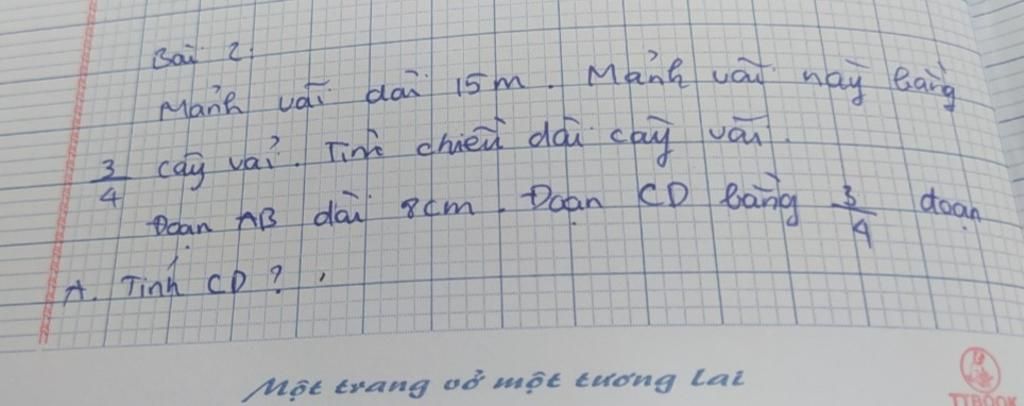 Bài 2:
Mảnh vải dài 15m. Mảnh vải này bằng
3/4 cây vải. Tính chiều dài cây vải.
Đoạn AB dài 8cm. Đoạn CD bằng 3/4 đoạn
A. Tính CD?
Một trang vở một tương lai
TTBOOK